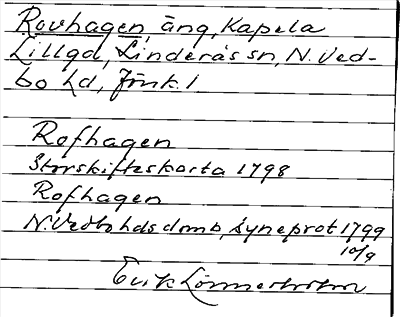 Rovhagen, äng, Kapela
Lillgd, Linderås sn, N. Ved-
bo hd, Jönk. l
Rofhagen
Storskifteskarta 1798
Rofhagen
N. Vedbo hds domb, Syneprot 1799
10/9
Erik